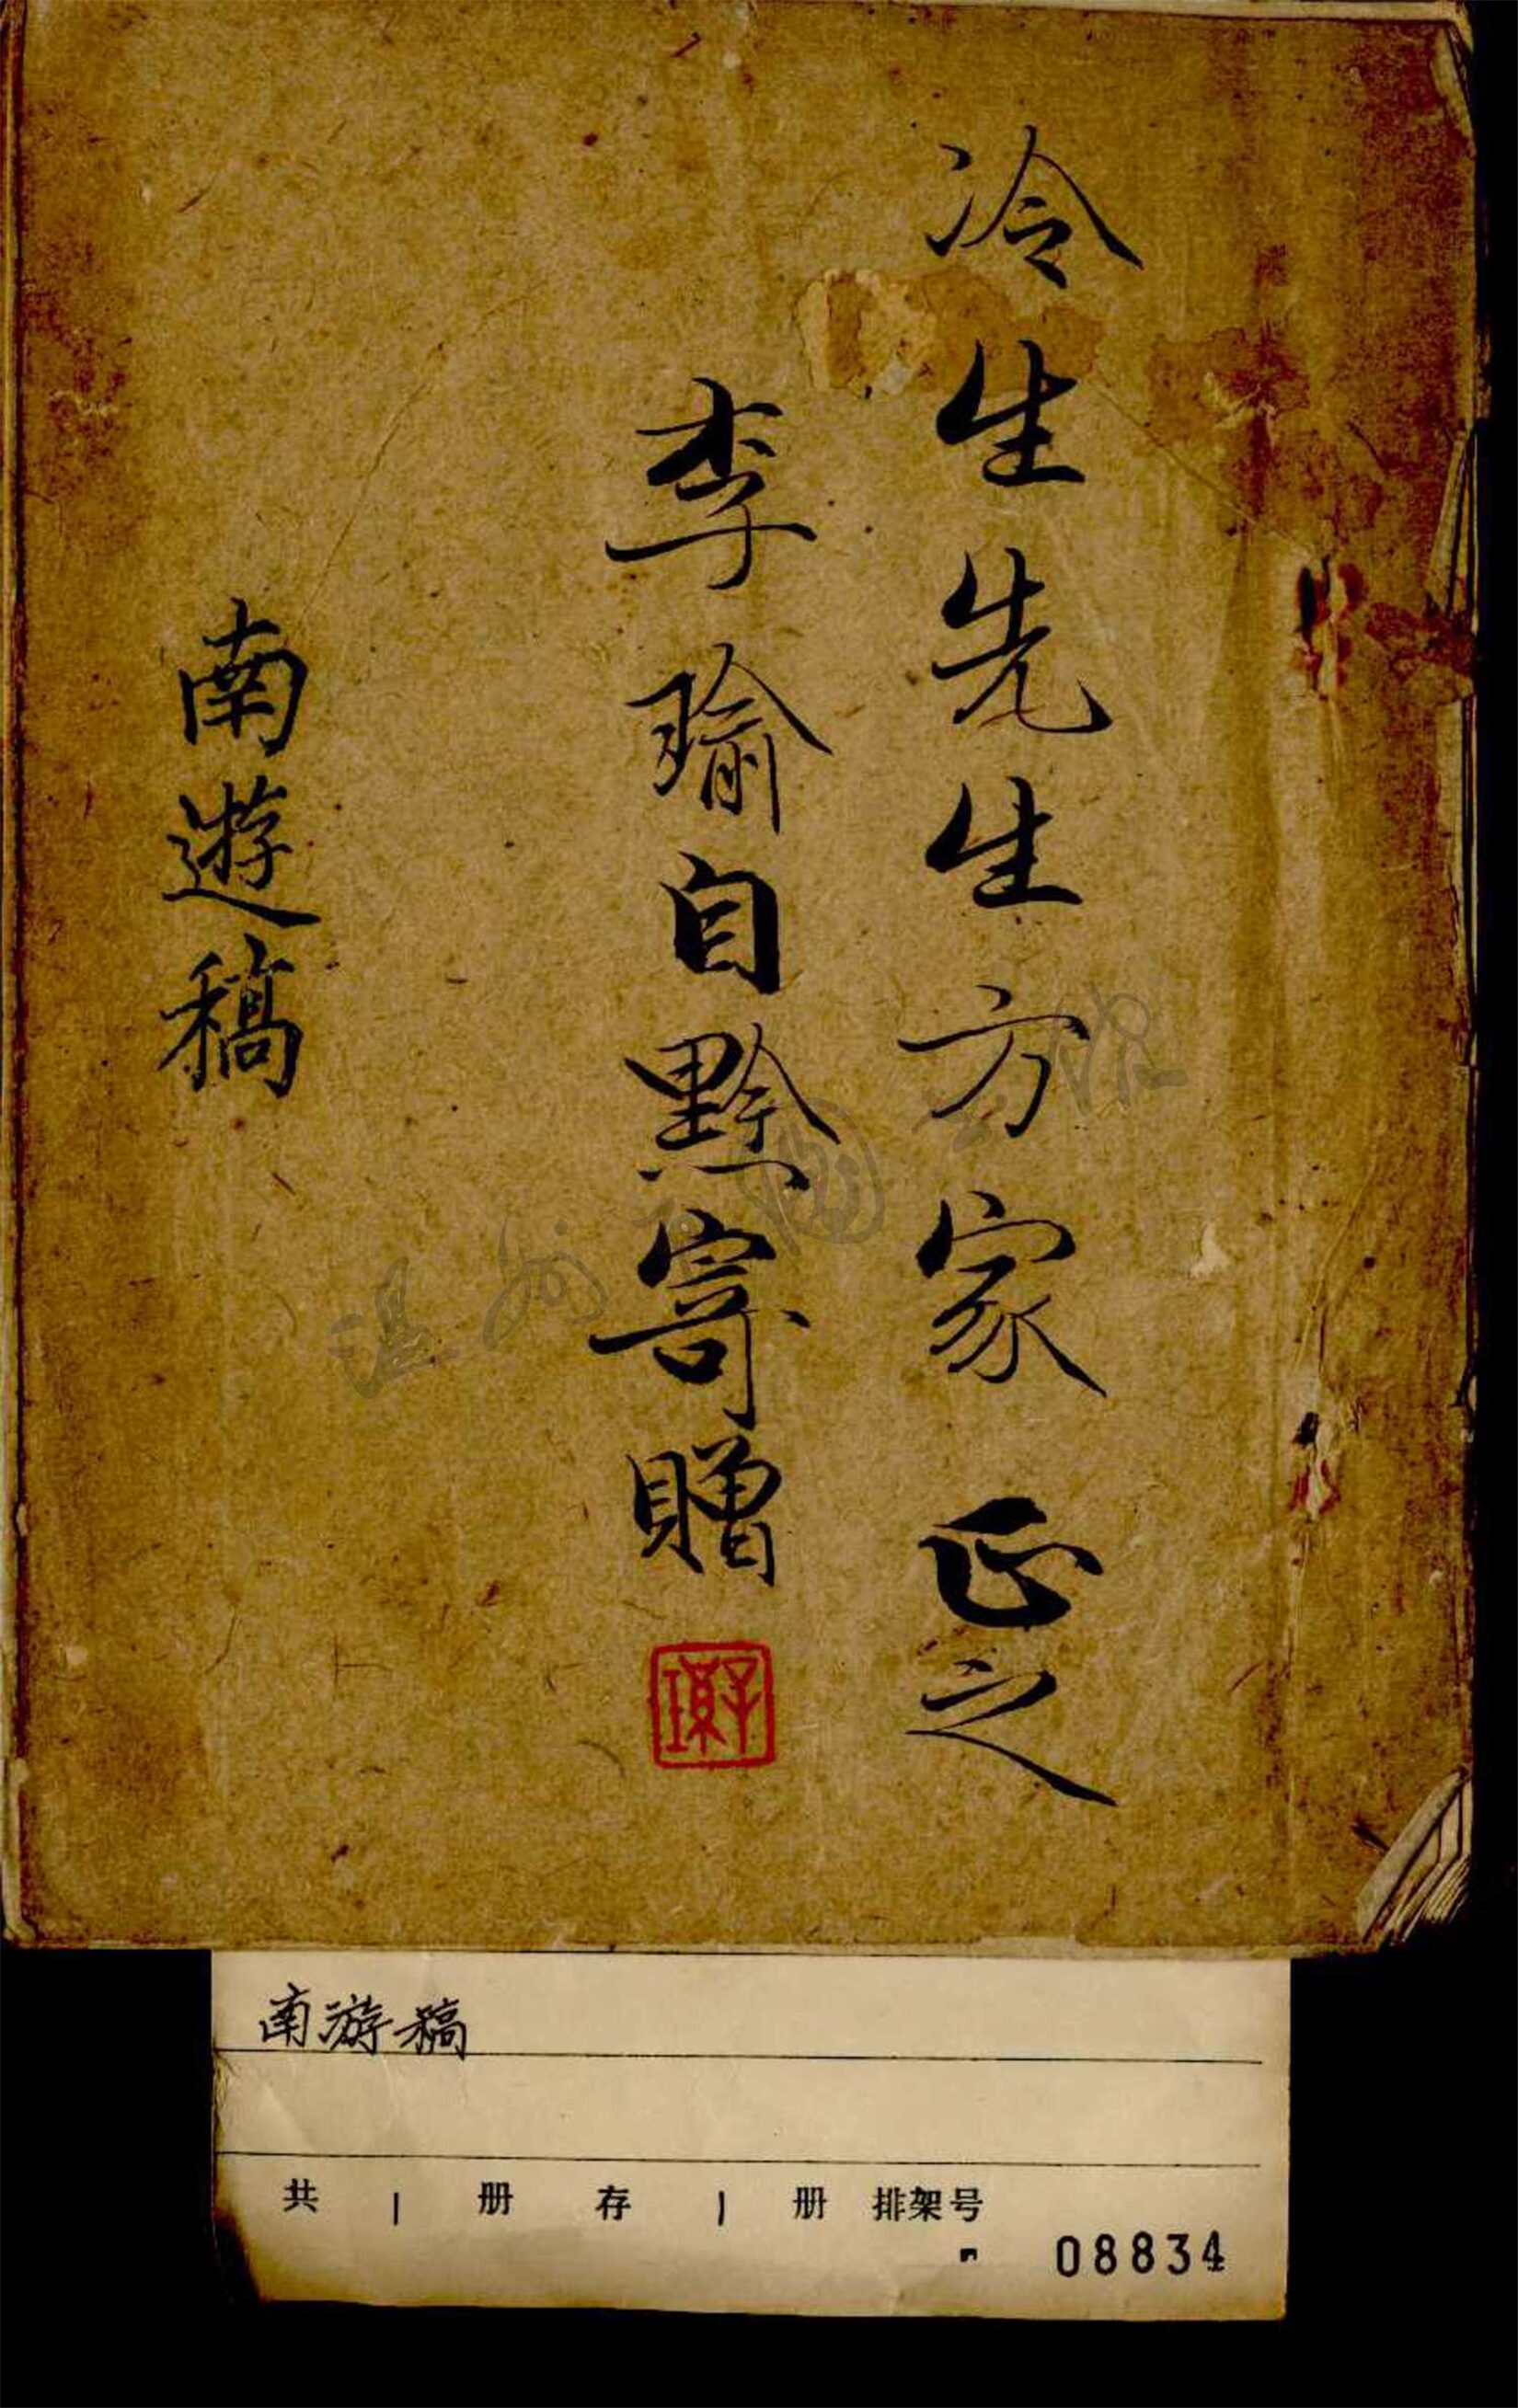 冷生先生方家正之
李瑜自黔寄贈
南遊稿
温州图
南游稿
共 1 册 存 1 册 排架号
08834